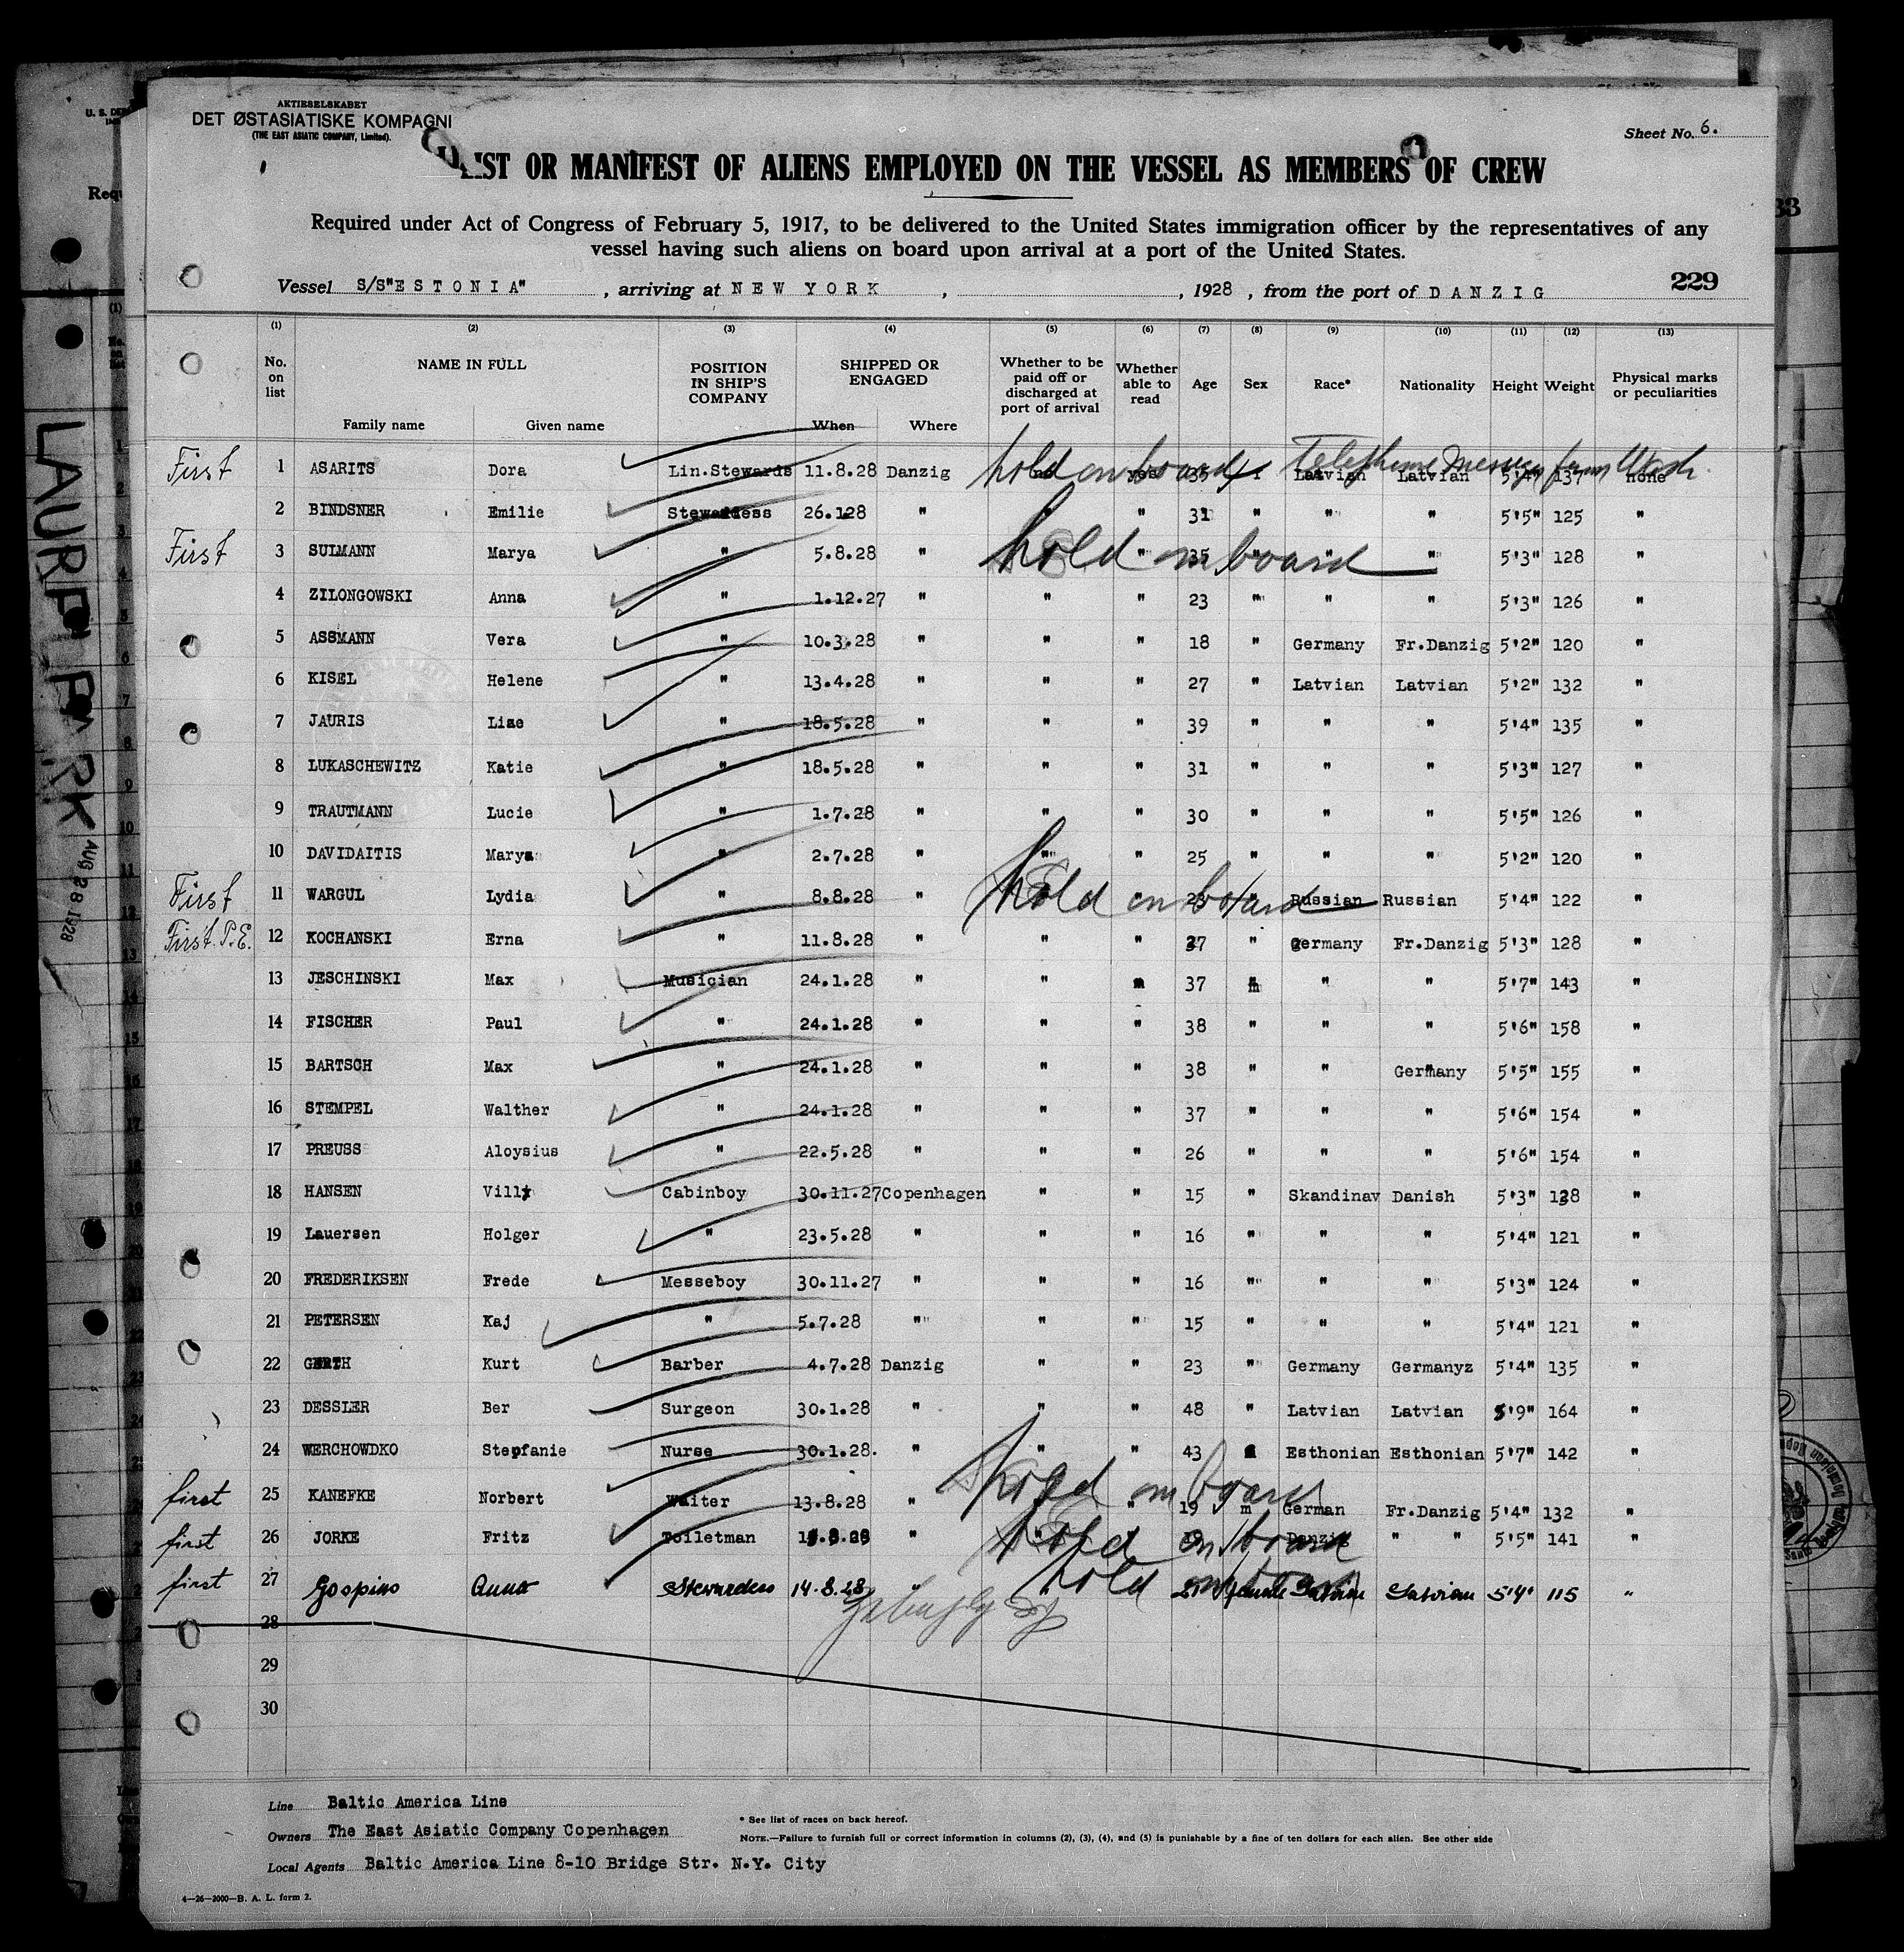 AKTIESELSKABET
DET ØSTASIATISKE KOMPAGNI
(THE EAST ASIATIC COMPANY, Limited).
Sheet No. 6.
LIST OR MANIFEST OF ALIENS EMPLOYED ON THE VESSEL AS MEMBERS OF CREW
Required under Act of Congress of February 5, 1917, to be delivered to the United States immigration officer by the representatives of any
vessel having such aliens on board upon arrival at a port of the United States.
229
Vessel S/S"ESTONIA" , arriving at NEW YORK , , 1928 , from the port of DANZIG
(1) (2) (3) (4) (5) (6) (7) (8) (9) (10) (11) (12) (13)
No. on list NAME IN FULL Family name Given name POSITION IN SHIP'S COMPANY SHIPPED OR ENGAGED When Where Whether to be paid off or discharged at port of arrival Whether able to read Age Sex Race* Nationality Height Weight Physical marks or peculiarities
First 1 ASARITS Dora Lin.Stewards 11.8.28 Danzig hold on board 35 Telephone message from Wash. Latvian Latvian 5'4" 137 none
2 BINDSNER Emilie Stewardess 26.128 " " " 31 " " " 5'5" 125 "
First 3 SULMANN Marya " 5.8.28 " hold on board " 35 " " " 5'3" 128 "
4 ZILONGOWSKI Anna " 1.12.27 " " " 23 " " " 5'3" 126 "
5 ASSMANN Vera " 10.3.28 " " " 18 " Germany Fr.Danzig 5'2" 120 "
6 KISEL Helene " 13.4.28 " " " 27 " Latvian Latvian 5'2" 132 "
7 JAURIS Lise " 18.5.28 " " " 39 " " " 5'4" 135 "
8 LUKASCHEWITZ Katie " 18.5.28 " " " 31 " " " 5'3" 127 "
9 TRAUTMANN Lucie " 1.7.28 " " " 30 " " " 5'5" 126 "
10 DAVIDAITIS Marya " 2.7.28 " " " 25 " " " 5'2" 120 "
First 11 WARGUL Lydia " 8.8.28 " hold on board " " Russian Russian 5'4" 122 "
First P.E. 12 KOCHANSKI Erna " 11.8.28 " " " 27 " Germany Fr.Danzig 5'3" 128 "
13 JESCHINSKI Max Musician 24.1.28 " " " 37 m " " 5'7" 143 "
14 FISCHER Paul " 24.1.28 " " " 38 " " " 5'6" 158 "
15 BARTSCH Max " 24.1.28 " " " 38 " " Germany 5'5" 155 "
16 STEMPEL Walther " 24.1.28 " " " 37 " " " 5'6" 154 "
17 PREUSS Aloysius " 22.5.28 " " " 26 " " " 5'6" 154 "
18 HANSEN Villy Cabinboy 30.11.27 Copenhagen " " 15 " Skandinav Danish 5'3" 128 "
19 Lauersen Holger " 23.5.28 " " " 16 " " " 5'4" 121 "
20 FREDERIKSEN Frede Messeboy 30.11.27 " " " 16 " " " 5'3" 124 "
21 PETERSEN Kaj " 5.7.28 " " " 15 " " " 5'4" 121 "
22 GERTH Kurt Barber 4.7.28 Danzig " " 23 " Germany Germanyz 5'4" 135 "
23 DESSLER Ber Surgeon 30.1.28 " " " 48 " Latvian Latvian 5'9" 164 "
24 WERCHOWDKO Stepfanie Nurse 30.1.28. " " " 43 f Esthonian Esthonian 5'7" 142 "
first 25 KANEFKE Norbert Waiter 13.8.28 " hold on board " 19 m German Fr.Danzig 5'4" 132 "
first 26 JORKE Fritz Toiletman " hold on board Danzig " " 5'5" 141 "
first 27 Gospins Anna Stewardess 14.8.28 " hold on board 21 female Latvian Latvian 5'4" 115 "
28
29
30
Line Baltic America Line
* See list of races on back hereof.
Owners The East Asiatic Company Copenhagen
NOTE.—Failure to furnish full or correct information in columns (2), (3), (4), and (5) is punishable by a fine of ten dollars for each alien. See other side
Local Agents Baltic America Line 8-10 Bridge Str. N.Y. City
4—26—2000—B. A. L. form 2.
AUG 28 1928